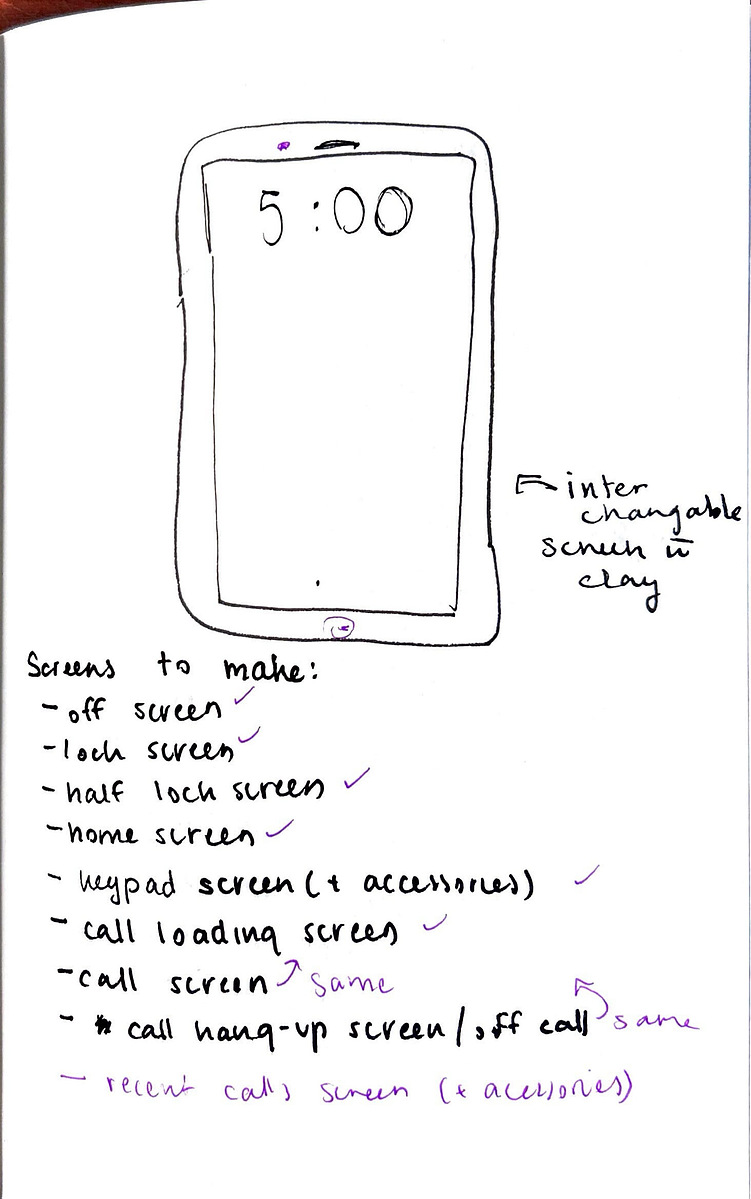 5:00
inter
changable
screen in
clay
Screens to make:
- off screen ✓
- lock screen ✓
- half lock screen ✓
- home screen ✓
- keypad screen (+ accessories) ✓
- call loading screen ✓
- call screen same
- call hang-up screen / off call same
- recent calls screen (+ acessories)